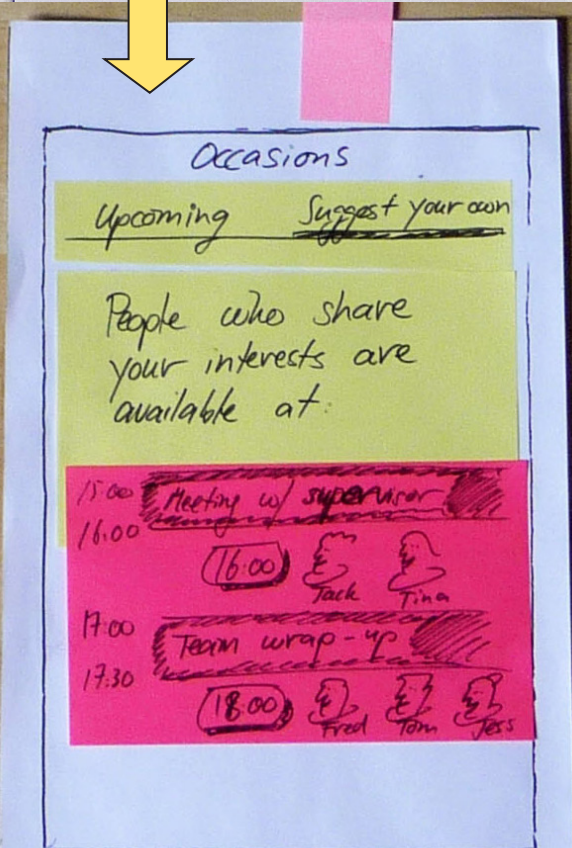 Occasions
Upcoming Suggest your own
People who share
your interests are
available at:
15:00 Meeting w/ supervisor
16:00
16:00
Jack Tina
17:00 Team wrap-up
17:30
18:00
Fred Tom Jess